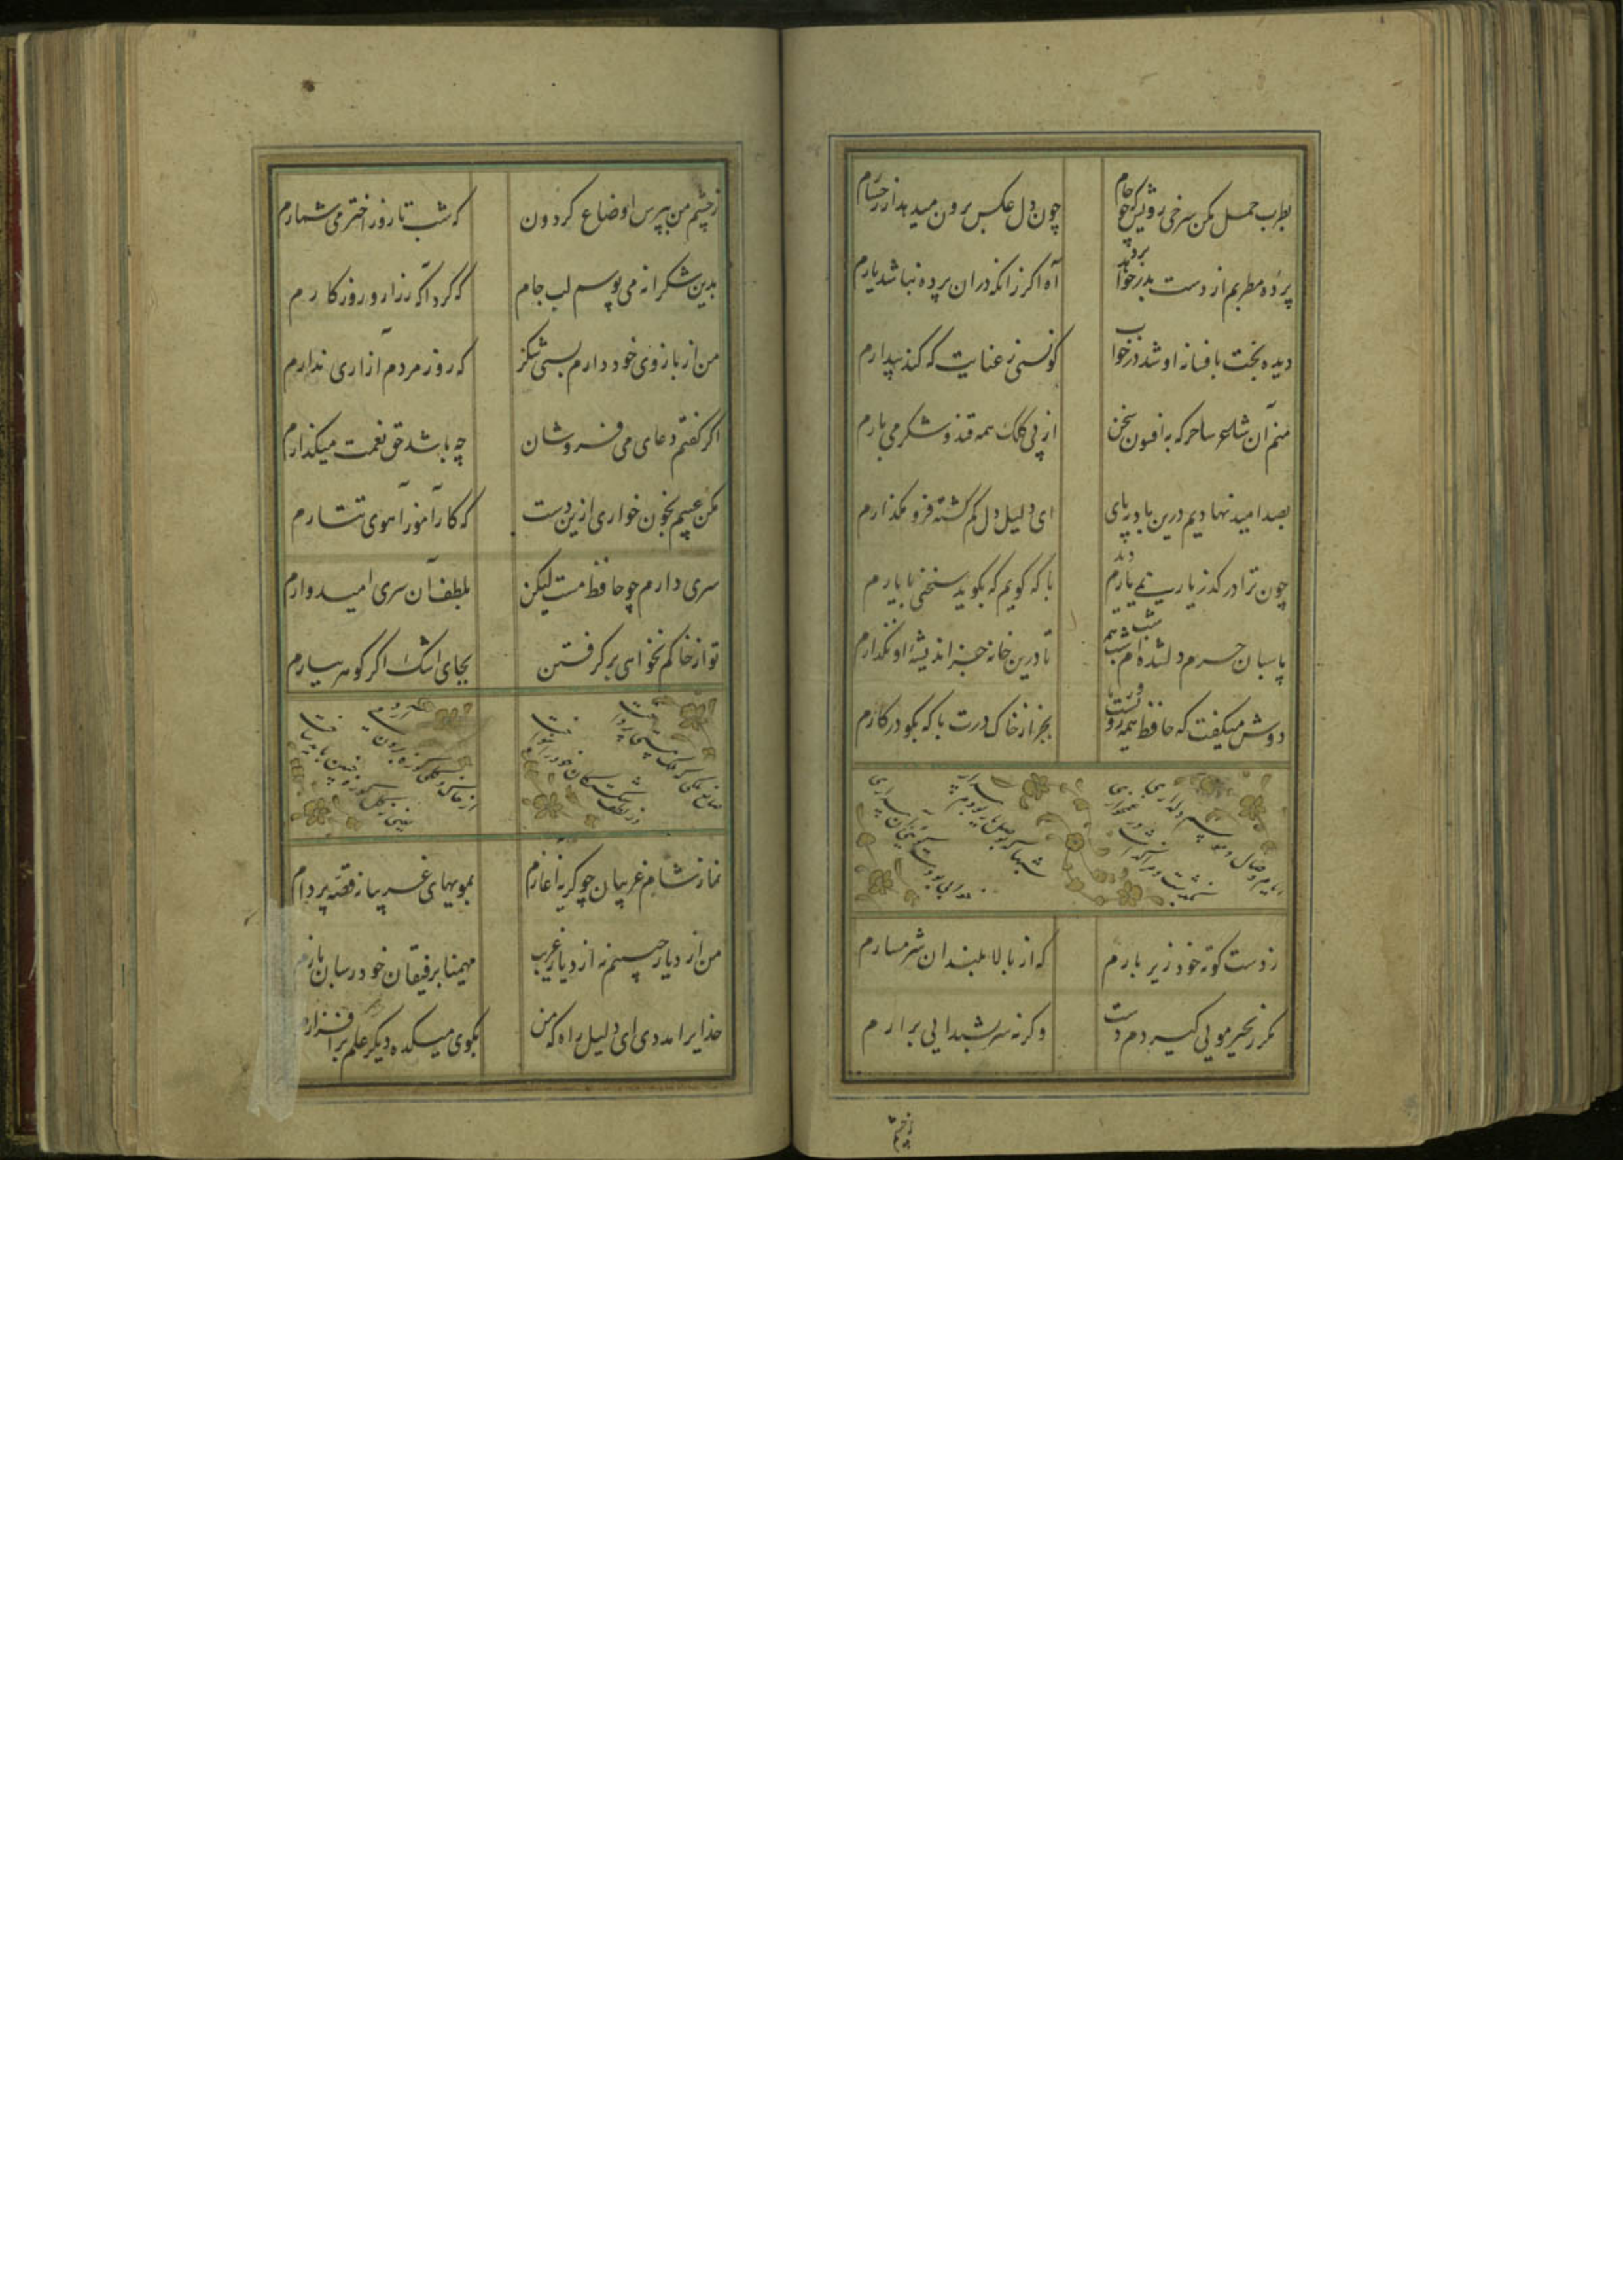 بطرب حمل مکن سرخی رویم که چو جام
چون دل عکس برون میدهد از رخسارم
پرده مطربم از دست بدر خواهد برد
آه اکر زانکه دران پرده نباشد یارم
دیده بخت بافسانه او شد در خواب
کو نسیمی ز عنایت که کند بیدارم
منم آن شاعر ساحر که به افسون سخن
از نی کلک همه قند و شکر می بارم
بصد امید نهادیم درین بادیه پای
ای دلیل دل کم کشته فرو مکذارم
چون ترا در کذر یار نمی یارم دید
با که کویم که بکوید سخنی با یارم
پاسبان حرم دل شده ام شب همه شب
تا درین خانه جز اندیشه او نکذارم
دوش میکفت که حافظ همه رویست و ریا
بجز از خاک درت با که بکو در کارم
ز دست کوته خود زیر بارم
که از بالا بلندان شرمسارم
مکر زنجیر مویی کیردم دست
وکرنه سر بشیدایی برارم
ز چشم
ز چشم من بپرس اوضاع کردون
که شب تا روز اختر می شمارم
بدین شکرانه می بوسم لب جام
که کرد آکه ز راز روزکارم
من از بازوی خود دارم بسی شکر
که زور مردم آزاری ندارم
اکر کفتم دعای می فروشان
چه باشد حق نعمت میکذارم
مکن عیبم بخون خواری ازین دست
که کار آموز آهوی تتارم
سری دارم چو حافظ مست لیکن
بلطف آن سری امیدوارم
تو از خاکم نخواهی برکرفتن
بجای اشک اکر کوهر ببارم
نماز شام غریبان چو کریه آغازم
بمویهای غریبانه قصه پردازم
من از دیار حبیبم نه از دیار غریب
مهیمنا برفیقان خود رسان بازم
خدایرا مددی ای دلیل راه که من
بکوی میکده دیکر علم برافرازم